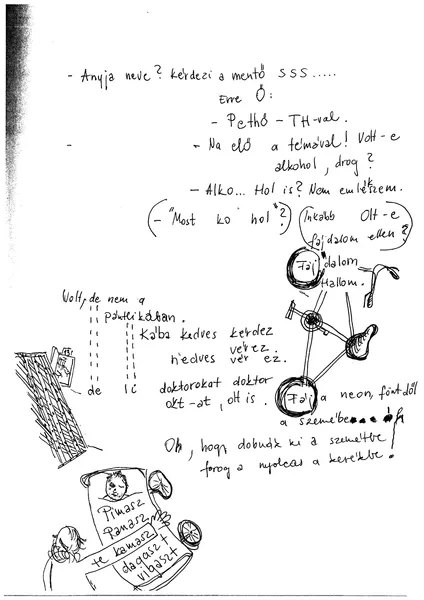 - Anyja neve? kérdezi a mentő SSS.....
Erre Ő:
- Pethő - TH-val.
- Na elő a témával! Volt-e
alkohol, drog?
- Alko... Hol is? Nem emlékszem.
(- "Most ko hol"?)
(Inkább Olt-e
fájdalom ellen?)
Fáj dalom
Hallom.
Volt, de nem a
pántlikában.
Kába kedves kérdez
nedves vérez.
vér ez.
de
doktorokat doktor
okt-at, olt is.
Fáj a neon, föntről
a szemébe
Oh, hogy dobnák ki a szemétbe
forog a nyolcas a kerékbe!
Pimasz
Panasz
te kamasz
dagaszt
vibaszt